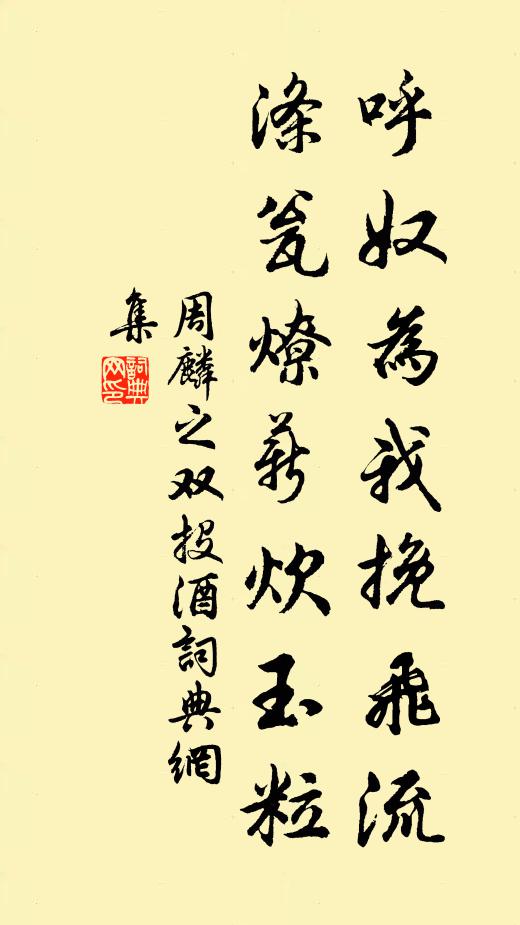 呼奴為我挽飛流
滌瓮燎薪炊玉粒
周麟之双投酒詞典網
集
詞典
网印